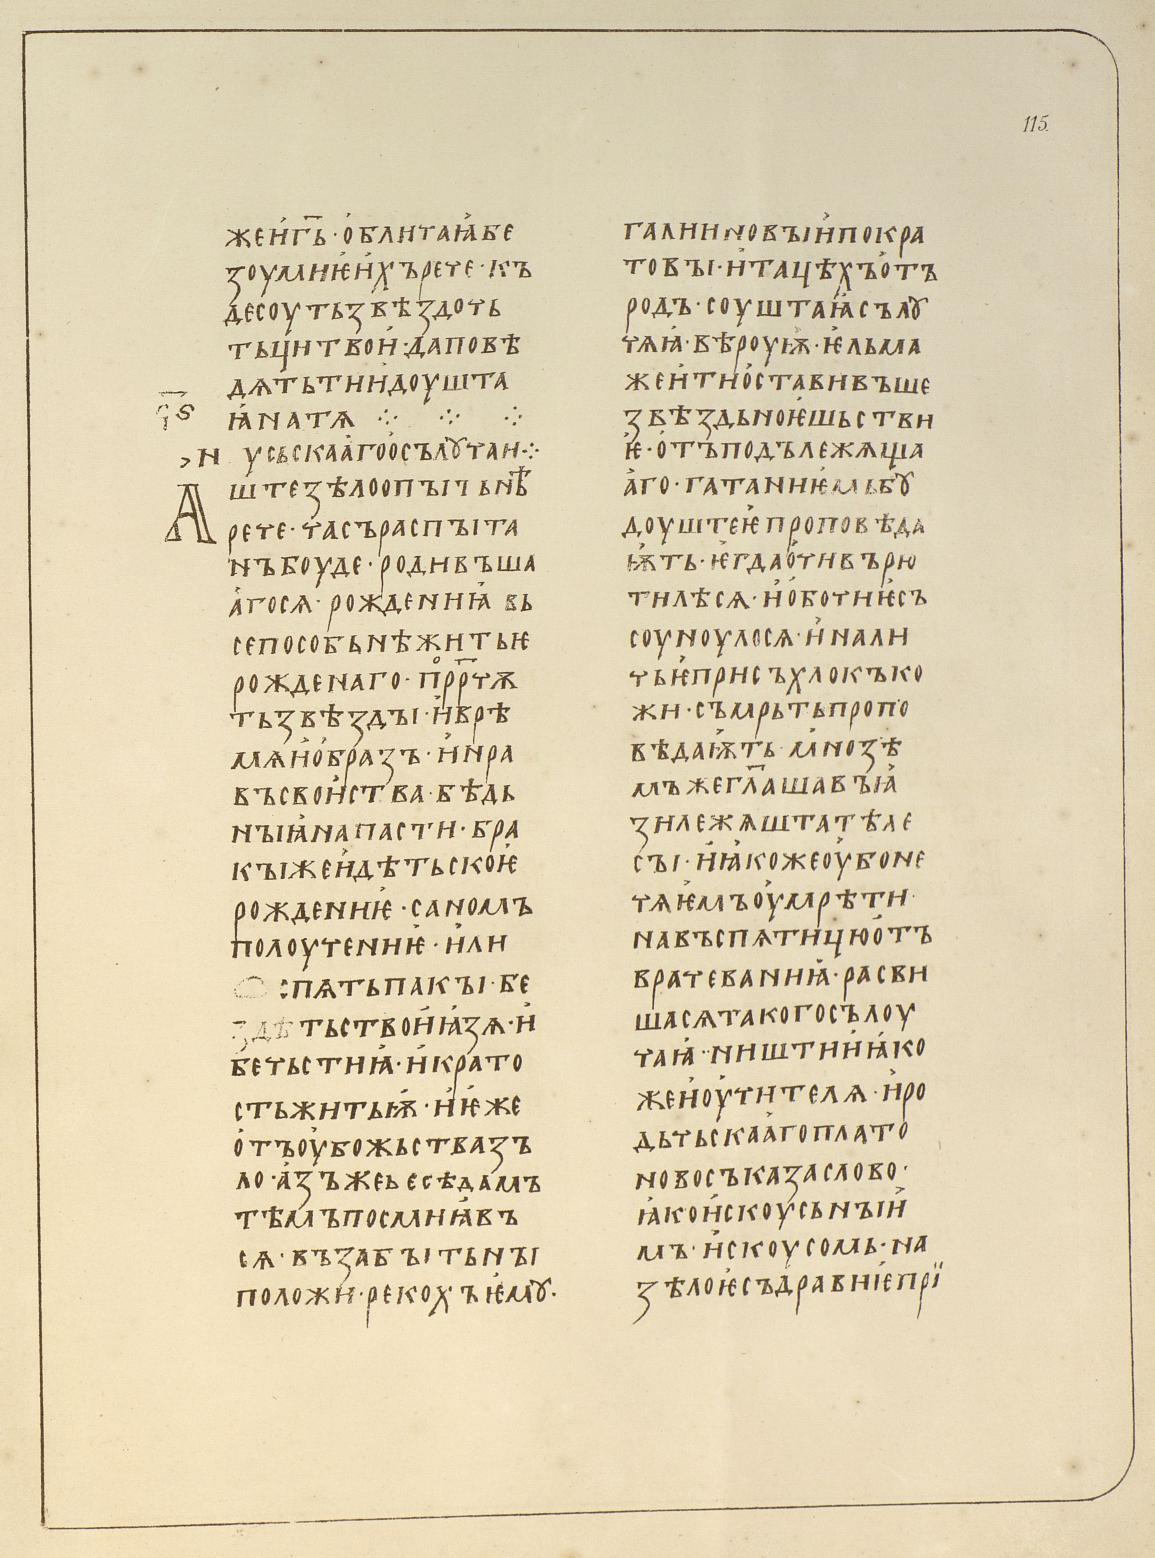 115.
жеи҆гь҃·о҆блитаꙗ҆бе
ꙁоумиѥ҆и҆хърече·къ
десоутьꙁвѣꙁдочь
тьци҆твои҆·даповѣ
дѧтьтии҆доушта
ꙗ҆натѧ ⁘ ⁘ ⁘
г҃ѕ
н оусьскаа҆гоо҆сълꙋчаи⁘
Аштеꙁѣлоопꙑчьнѣ
рече·часъраспꙑта
нъбоуде·родивъша
а҆госѧ·рождениꙗ҆ вь
сепособьнѣжитьѥ
рожденаго·прⷪ҇рчѭ
тьꙁвѣꙁдꙑ·и҆врѣ
мѧи҆о҆браꙁъ·и҆нра
въсвои҆ства·бѣдь
нꙑꙗ҆напасти·бра
кꙑжеи҆дѣтьскоѥ҆
рождениѥ·саномъ
полоучениѥ·и҆ли
опѧтьпакꙑ·бе
ꙁдѣтьствои҆ꙗ҆ꙁѧ·и҆
бечьстиꙗ҆·и҆крато
стьжитьꙗ҆·и҆ѥ҆же
о҆тъоу҆божьстваꙁъ
ло·а҆ꙁъжеьесѣдамъ
тѣмъпосмиꙗ҆въ
сѧ·въꙁабꙑтьнꙑ
положи·рекохъѥ҆мꙋ·
галииновꙑи҆покра
товꙑ·и҆тацѣхъо҆тъ
родъ·соуштаꙗ҆сълꙋ
чѧꙗ҆·вѣроуѭ·ѥ҆льма
жеи҆тио҆ставивъше
ꙁвѣꙁдьноѥ҆шьстви
ѥ҆·о҆тъподълежѧща
а҆го·гатаниѥмьбꙋ
доуштеѥ҆проповѣда
ѭ҆ть·ѥ҆гдао҆чивърю
тилѣсѧ·и҆о҆бочиѥсъ
соуноулосѧ·и҆нали
чьѥ҆присъхлокъко
жи·съмрьтьпропо
вѣдаѭ҆ть·мноꙁѣ
мъжегл҃ашавꙑꙗ҆
ꙁилежѧштатѣле
сꙑ·и҆ꙗ҆кожеоу҆боне
чѧѥ҆мъоу҆мрѣти·
навъспѧтицюо҆тъ
врачеваниꙗ҆·расви
шасѧтакогосълоу
чаꙗ҆·ништии҆ꙗ҆ко
жеи҆оу҆чителѧ·и҆ро
дьчьскаа҆гоплато
новосъкаꙁаслово·
ꙗ҆кои҆скоусьнꙑи҆
мъ·и҆скоусомь·на
ꙁѣлоѥ҆съдравниѥ҆прї